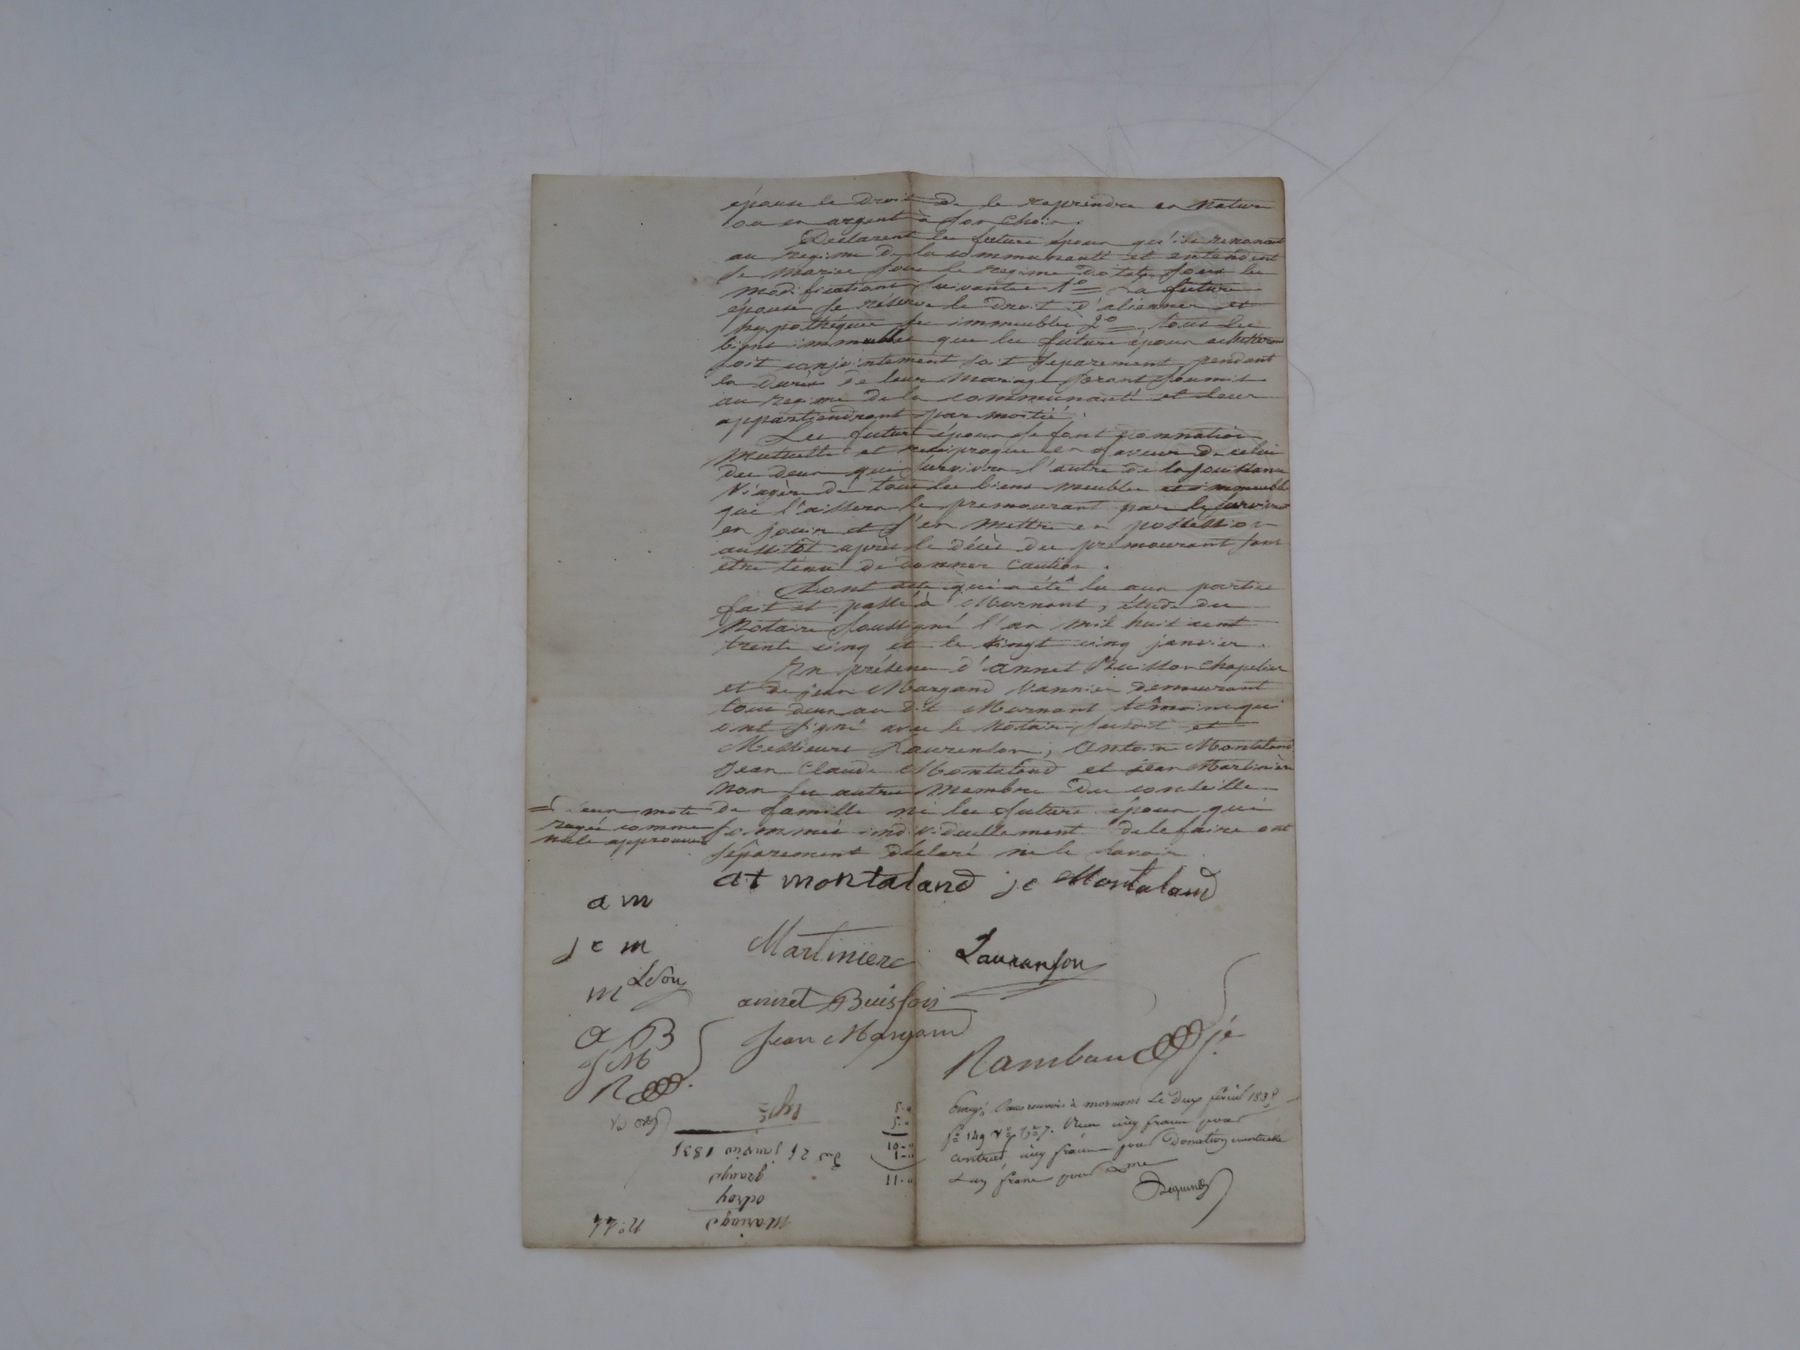 épouse le droit de le reprendre en nature
ou en argent à son choix.
Déclarent les futurs époux qu'ils renoncent
au regime de la communauté et entendent
se marier sous le regime dotal sous les
modifications suivantes 1° La future
épouse se réserve le droit d'aliener et
hypothéquer ses immeubles 2° tous les
biens immeubles que les futurs époux achetteron
soit conjointement soit séparement, pendant
la durée de leur mariage seront soumis
au regime de la communauté et leur
appartiendront par moitié.
Les futurs époux se font donnation
mutuelle et reciproque en faveur de celui
des deux qui survivra l'autre de la jouissance
viagère de tous les biens meubles et immeubles
que l'aissera le premourant par le survivant
en jouir et s'en mettre en possession
aussitôt après le décès du prémourant sans
être tenu de donner caution.
Dont acte qui a été lu aux parties
fait et passé à Mornant, étude du
Notaire soussigné l'an mil huit cent
trente cinq et le vingt cinq janvier.
En présence d'annet Buisson chapelier
et de jean Margand vannier demeurant
tous deux au dit Mornant témoins qui
ont signé avec le Notaire susdit et
Messieurs Laurenson, Antoine Montaland
Jean Claude Montaland et jean Martinière
non les autres membres du conseille
de famille ni les futurs époux qui
sommés individuellement de le faire ont
séparement déclaré ne le savoir
= deux mots
rayés comme
nuls approuvés
at montaland jc Montaland
a m
j c m
Martiniere Lauranson
m Lson
annet Buisson
a B
Jean Margand
J M
Rambau
R
Enregé. à mornant Le Deux février 1835
f° 149 v° Reçu cinq francs pour
contrat, cinq francs pour Donation mutuelle
& un franc pour
5-0
5-0
10-0
1-0
11-0
Du 25 janvier 1835
Mariage